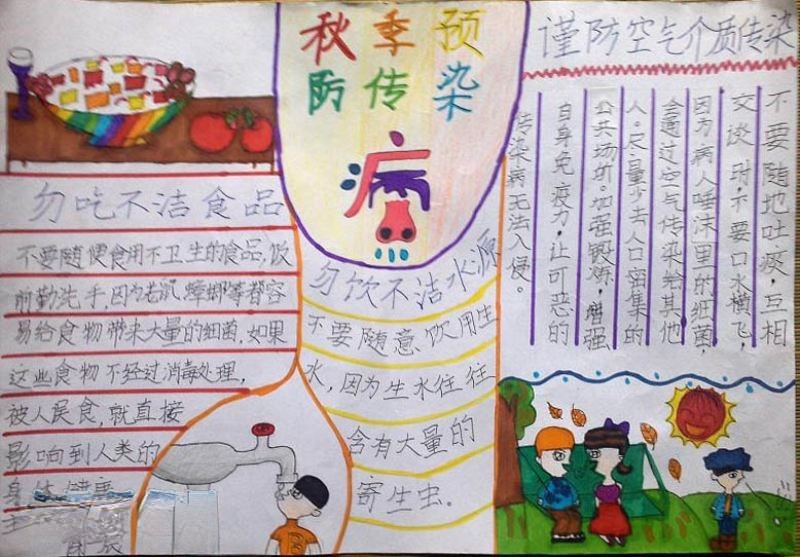 秋季预
防传染
病
勿吃不洁食品
不要随便食用不卫生的食品,饮
前勤洗手,因为老鼠,蟑螂等都容
易给食物带来大量的细菌,如果
这些食物不经过消毒处理,
被人误食,就直接
影响到人类的
身体健康
勿饮不洁水源
不要随意饮用生
水,因为生水往往
含有大量的
寄生虫.
谨防空气介质传染
不要随地吐痰,互相
交谈时,不要口水横飞,
因为病人唾沫里的细菌,
会通过空气传染给其他
人。尽量少去人口密集的
公共场所。加强锻炼,增强
自身免疫力,让可恶的
传染病无法入侵。